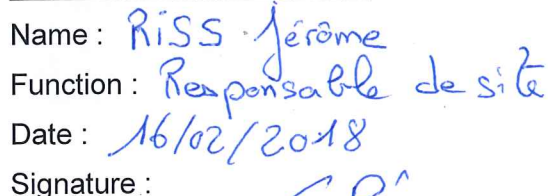 Name : RISS Jérôme
Function : Responsable de site
Date : 16/02/2018
Signature :